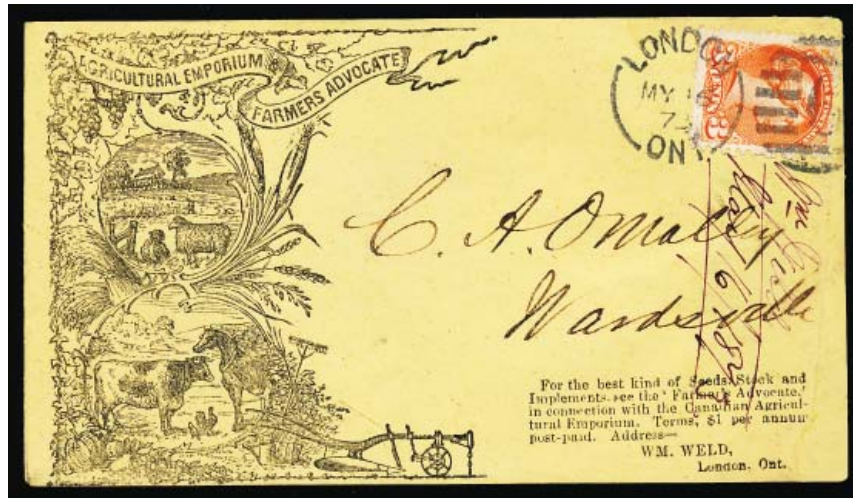 AGRICULTURAL EMPORIUM
FARMERS ADVOCATE
LONDON
MY
ONT
3
3
C. A. OMalley
Wardsville
For the best kind of Seeds, Stock and
Implements, see the 'Farmer's Advocate,'
in connection with the Canadian Agricul-
tural Emporium. Terms, $1 per annum
post-paid. Address—
WM. WELD,
London, Ont.